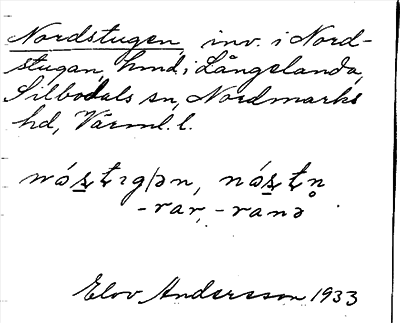 Nordstugen inv. i Nord-
stugan, hmd. i Långelanda,
Silbodals sn, Nordmarks
hd, Värml. l.
-rar, -ranə
Elov Andersson 1933